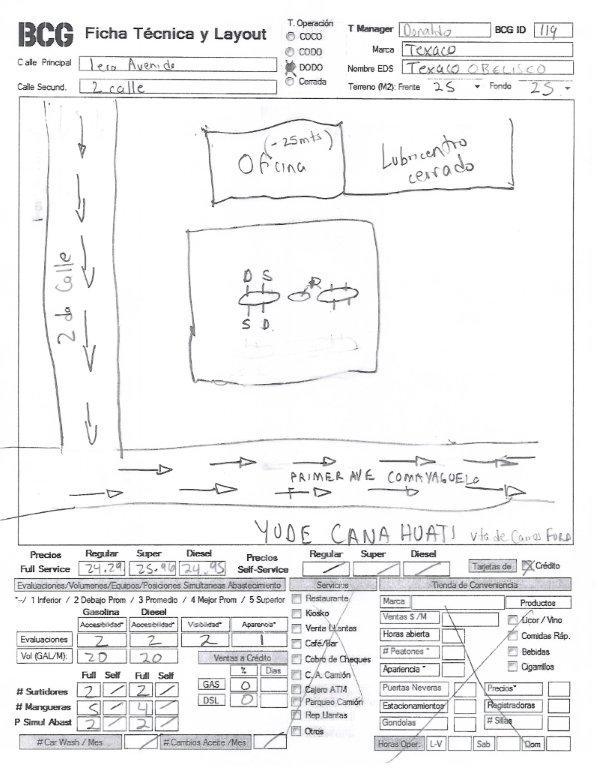 BCG Ficha Técnica y Layout
T. Operación
COCO
CODO
DODO
Cerrada
T Manager Donaldo BCG ID 119
Marca Texaco
Calle Principal 1era Avenida
Nombre EDS Texaco OBELISCO
Calle Secund. 2 calle
Terreno (M2): Frente 25 Fondo 25
(-25mts)
Oficina
Lubricentro cerrado
2 da Calle
D S
S D
PRIMER AVE COMAYAGUELO
YUDE CANAHUATI Vta de Carros FORD
Precios Regular Super Diesel
Full Service 24.29 25.96 24.95
Precios Regular Super Diesel
Self-Service
Tarjetas de Crédito
Evaluaciones/Volumenes/Equipos/Posiciones Simultaneas Abastecimiento
*-/ 1 Inferior / 2 Debajo Prom / 3 Promedio / 4 Mejor Prom / 5 Superior
Gasolina Diesel
Accesibilidad* Accesibilidad* Visibilidad* Apariencia*
Evaluaciones 2 2 2 1
Vol (GAL/M): 20 20
Ventas a Crédito
% Dias
GAS 0
DSL 0
Full Self Full Self
# Surtidores 2 / 2 /
# Mangueras / 4 /
P Simul Abast 2 / 2 /
# Car Wash / Mes
# Cambios Aceite / Mes
Servicios
Restaurante
Kiosko
Venta Llantas
Café/Bar
Cobro de Cheques
C. A. Camión
Cajero ATM
Parqueo Camión
Rep. Llantas
Otros
Tienda de Conveniencia
Marca
Ventas $ /M
Horas abierta
# Peatones *
Apariencia *
Puertas Neveras
Estacionamientos
Gondolas
Productos
Licor / Vino
Comidas Ráp.
Bebidas
Cigarrillos
Precios*
Registradoras
# Sillas
Horas Oper: L-V Sab Dom